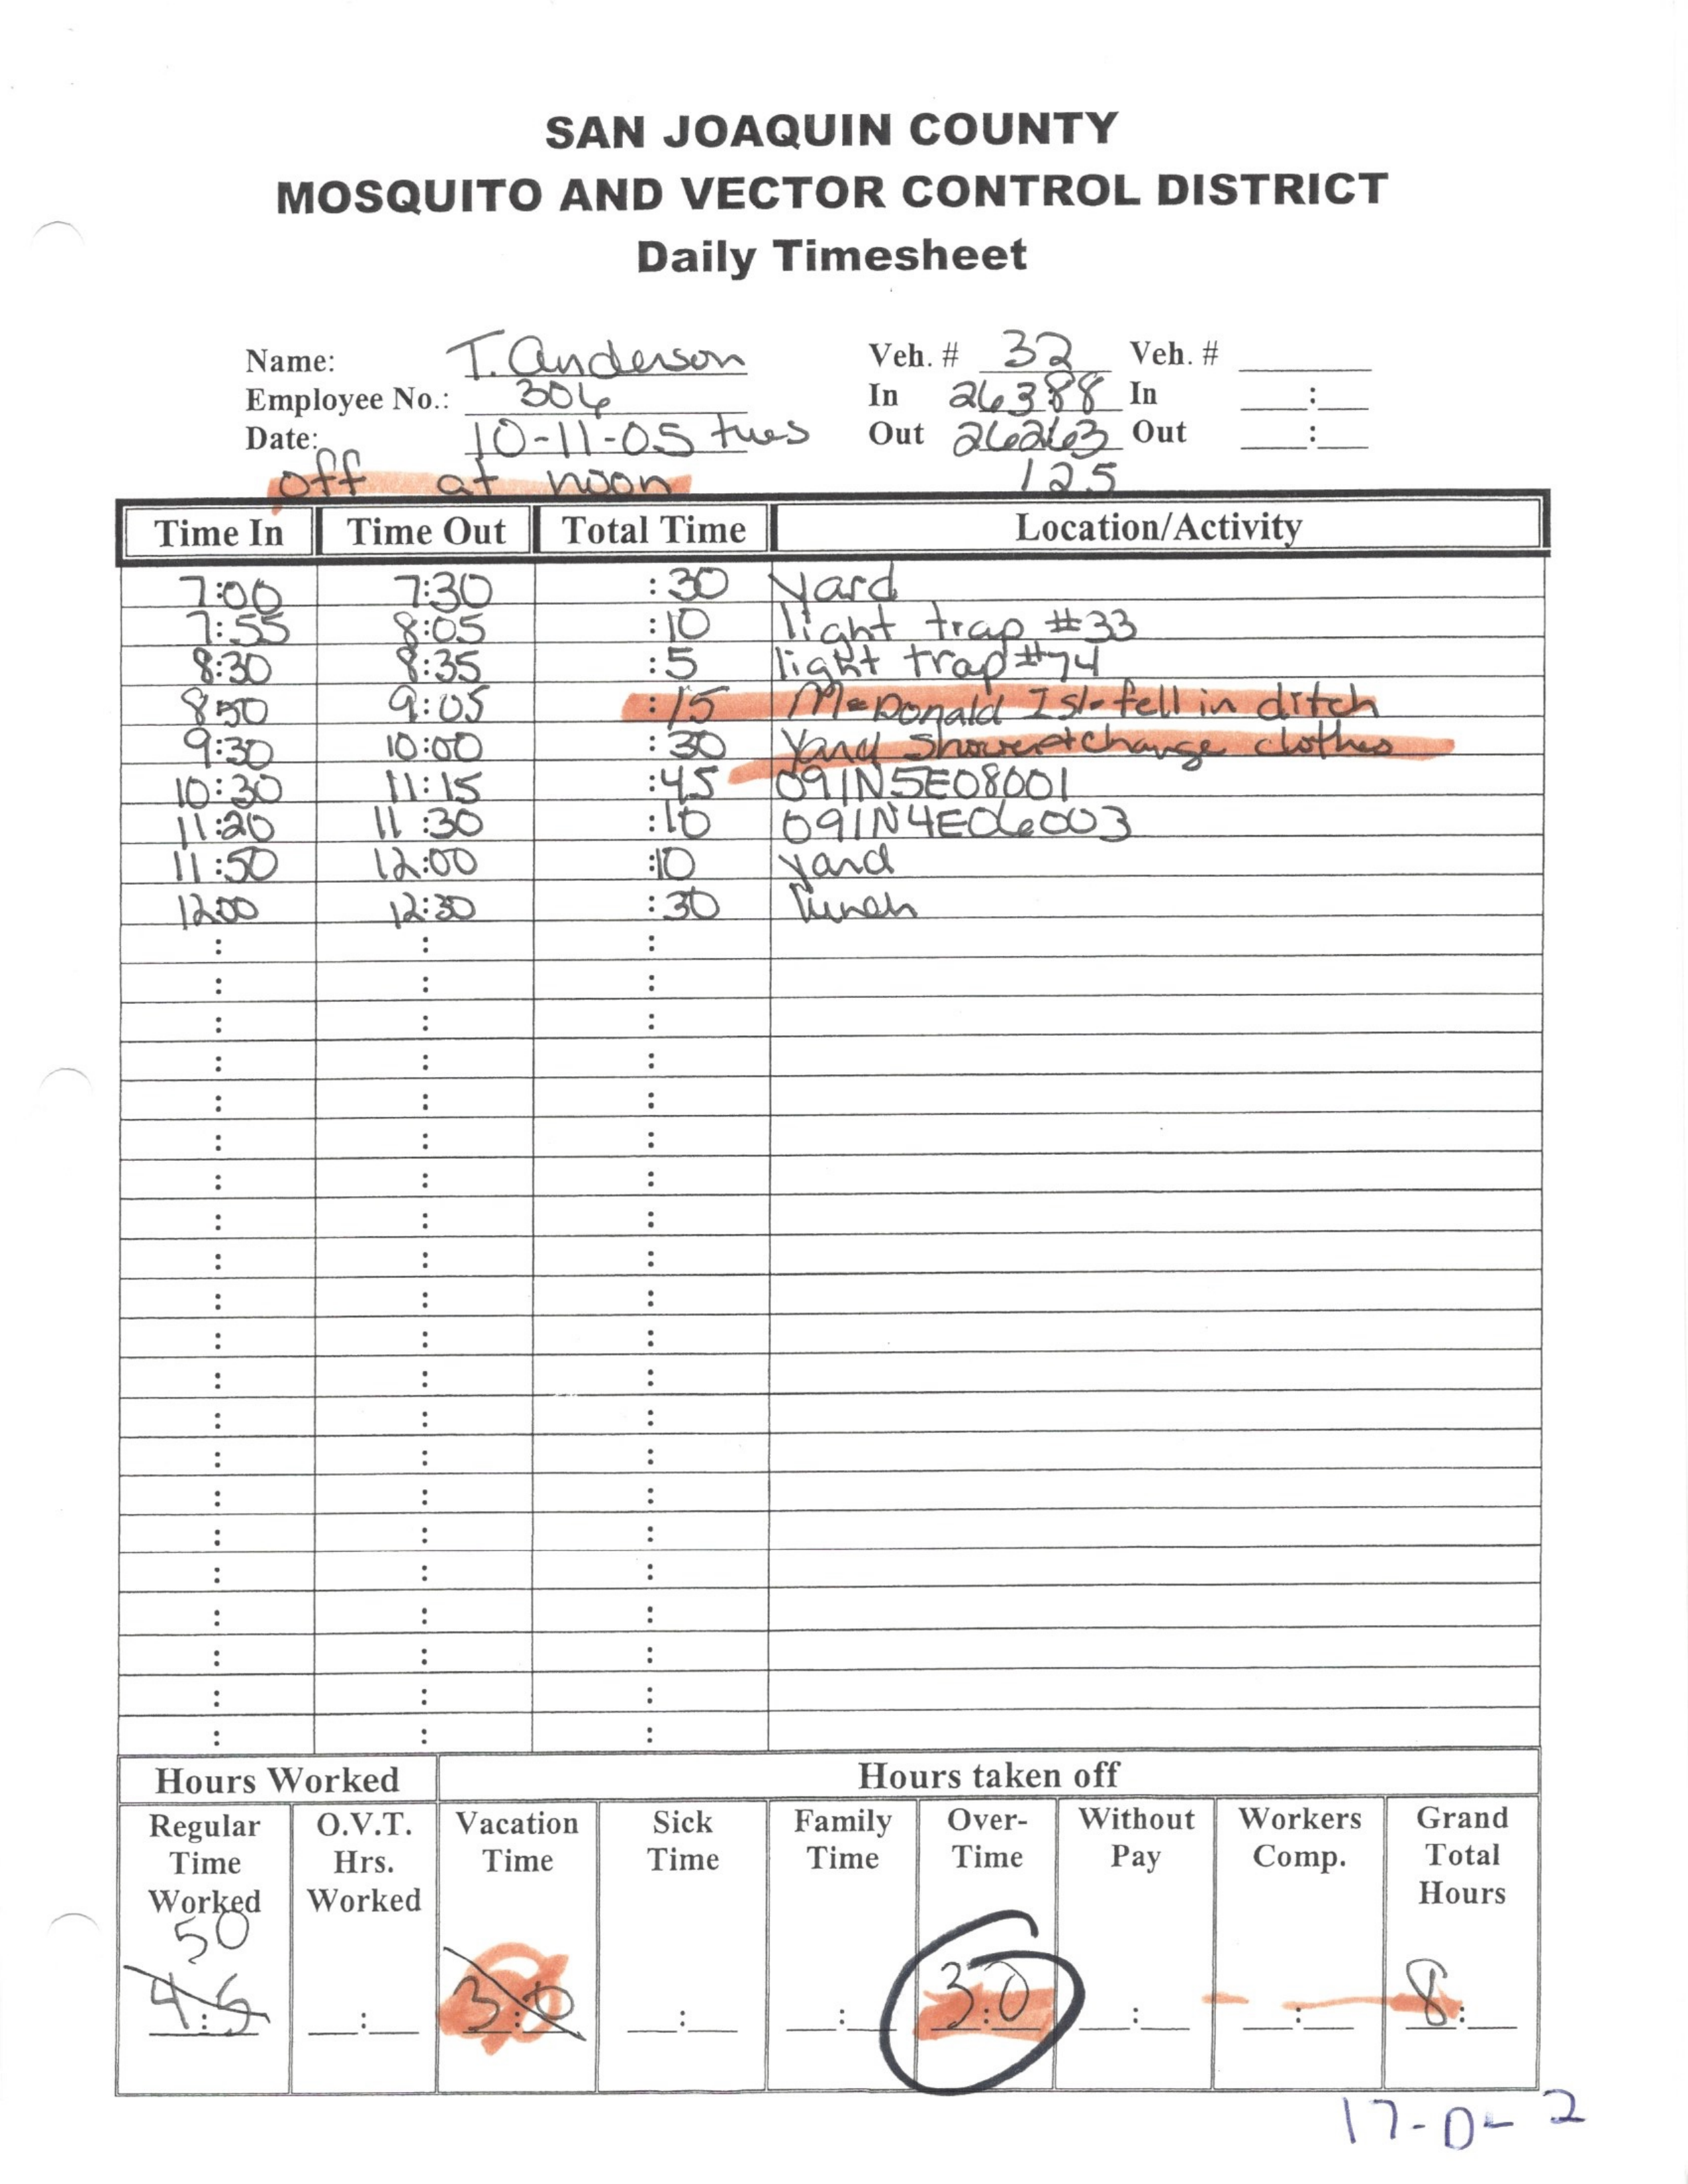 SAN JOAQUIN COUNTY
MOSQUITO AND VECTOR CONTROL DISTRICT
Daily Timesheet
Name: T. Anderson Veh. # 32 Veh. #
Employee No.: 306 In 26388 In :
Date: 10-11-05 tues Out 26263 Out :
off at noon 125
Time In Time Out Total Time Location/Activity
7:00 7:30 :30 yard
7:55 8:05 :10 light trap #33
8:30 8:35 :5 light trap #74
8:50 9:05 :15 McDonald Isl- fell in ditch
9:30 10:00 :30 Yard Shower+change clothes
10:30 11:15 :45 091N5E08001
11:20 11:30 :10 091N4E06003
11:50 12:00 :10 yard
12:00 12:30 :30 lunch
: : :
: : :
: : :
: : :
: : :
: : :
: : :
: : :
: : :
: : :
: : :
: : :
: : :
: : :
: : :
: : :
: : :
: : :
: : :
: : :
: : :
Hours Worked Hours taken off
Regular Time Worked O.V.T. Hrs. Worked Vacation Time Sick Time Family Time Over-Time Without Pay Workers Comp. Grand Total Hours
50
4:5 : 3:0 : : 3:0 : : 8:
17-D-2